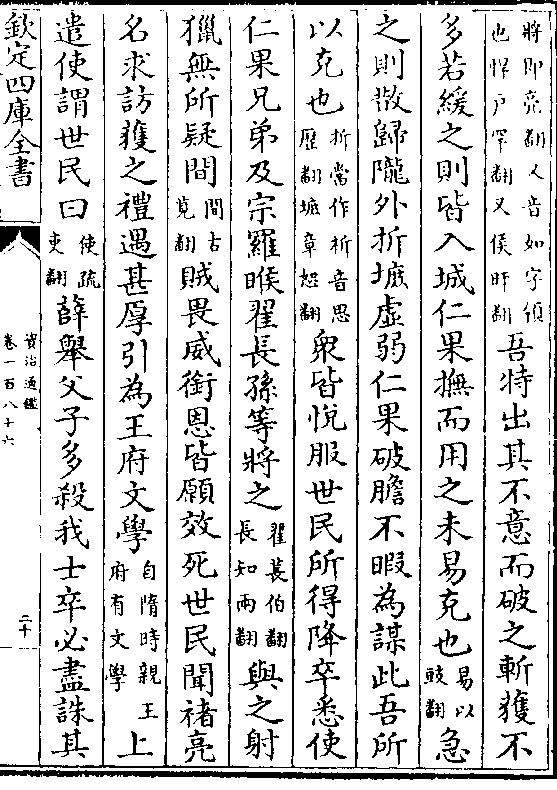 將即亮翻人音如字領也悍户罕翻又侯旰翻吾特出其不意而破之斬獲不
多若緩之則皆入城仁果撫而用之未易克也易以豉翻急
之則散歸隴外折墌虛弱仁果破膽不暇為謀此吾所
以克也折當作析音思歷翻墌章恕翻衆皆悅服世民所得降卒悉使
仁果兄弟及宗羅睺翟長孫等將之翟萇伯翻長知兩翻與之射
獵無所疑間間古莧翻賊畏威銜恩皆願效死世民聞褚亮
名求訪獲之禮遇甚厚引為王府文學自隋時親王府有文學上
遣使謂世民曰使疏吏翻薛舉父子多殺我士卒必盡誅其
欽定四庫全書
資治通鑑
卷一百八十六
二十